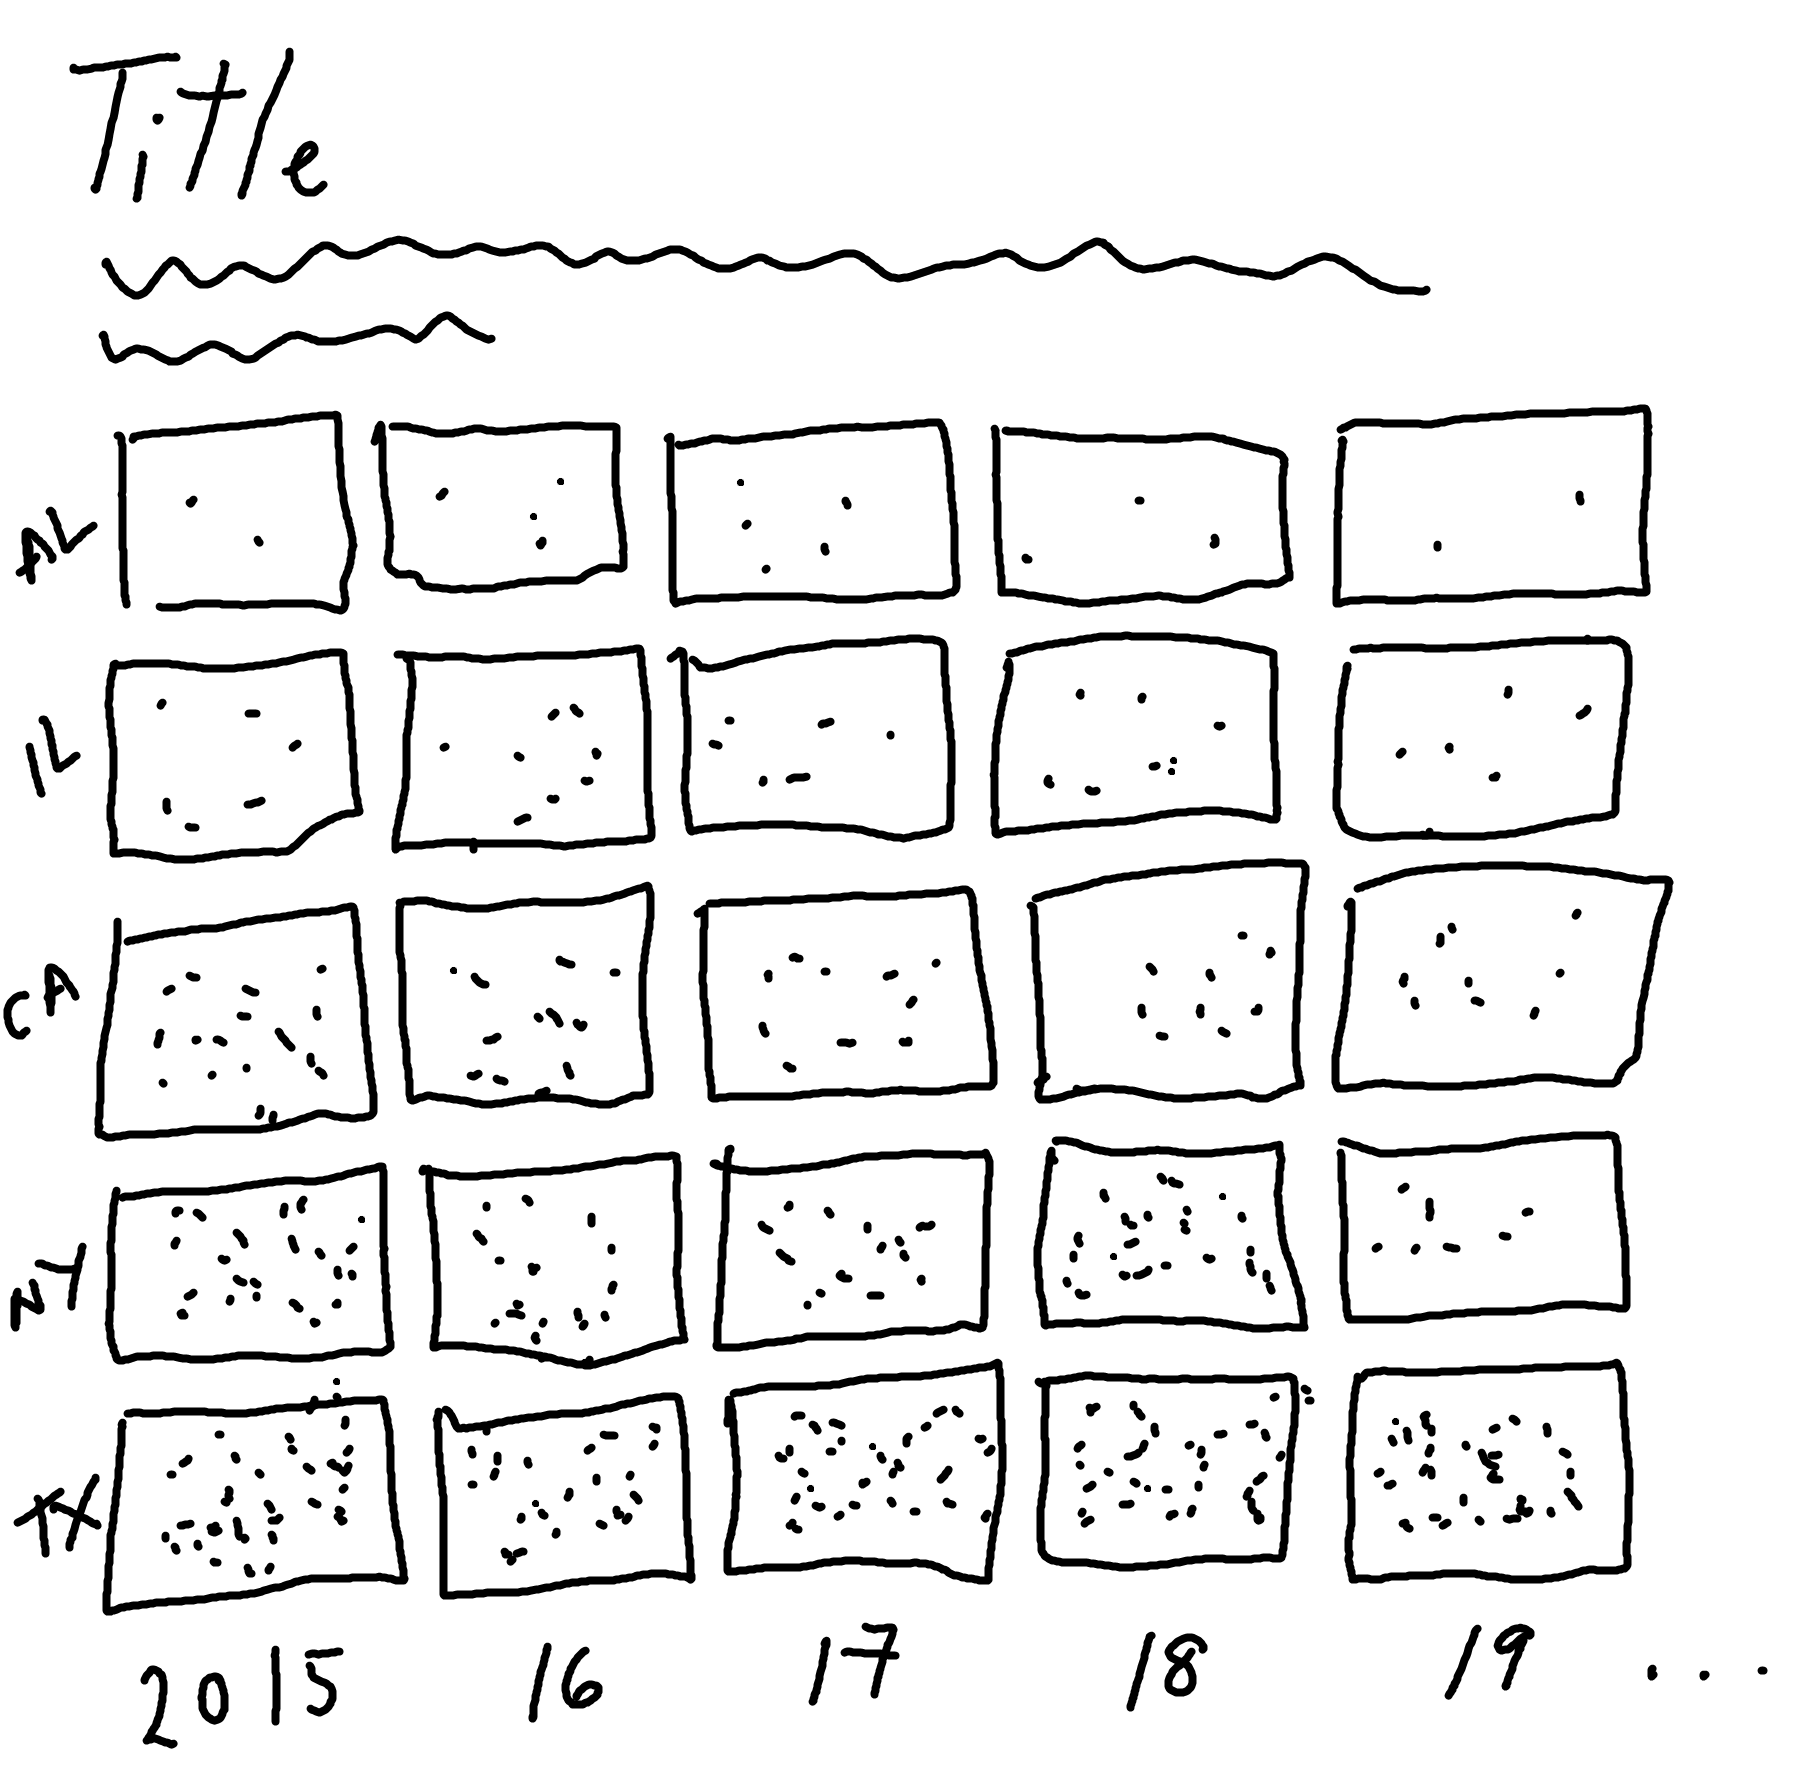 Title
AL
IL
CA
NY
TX
2015 16 17 18 19 ...